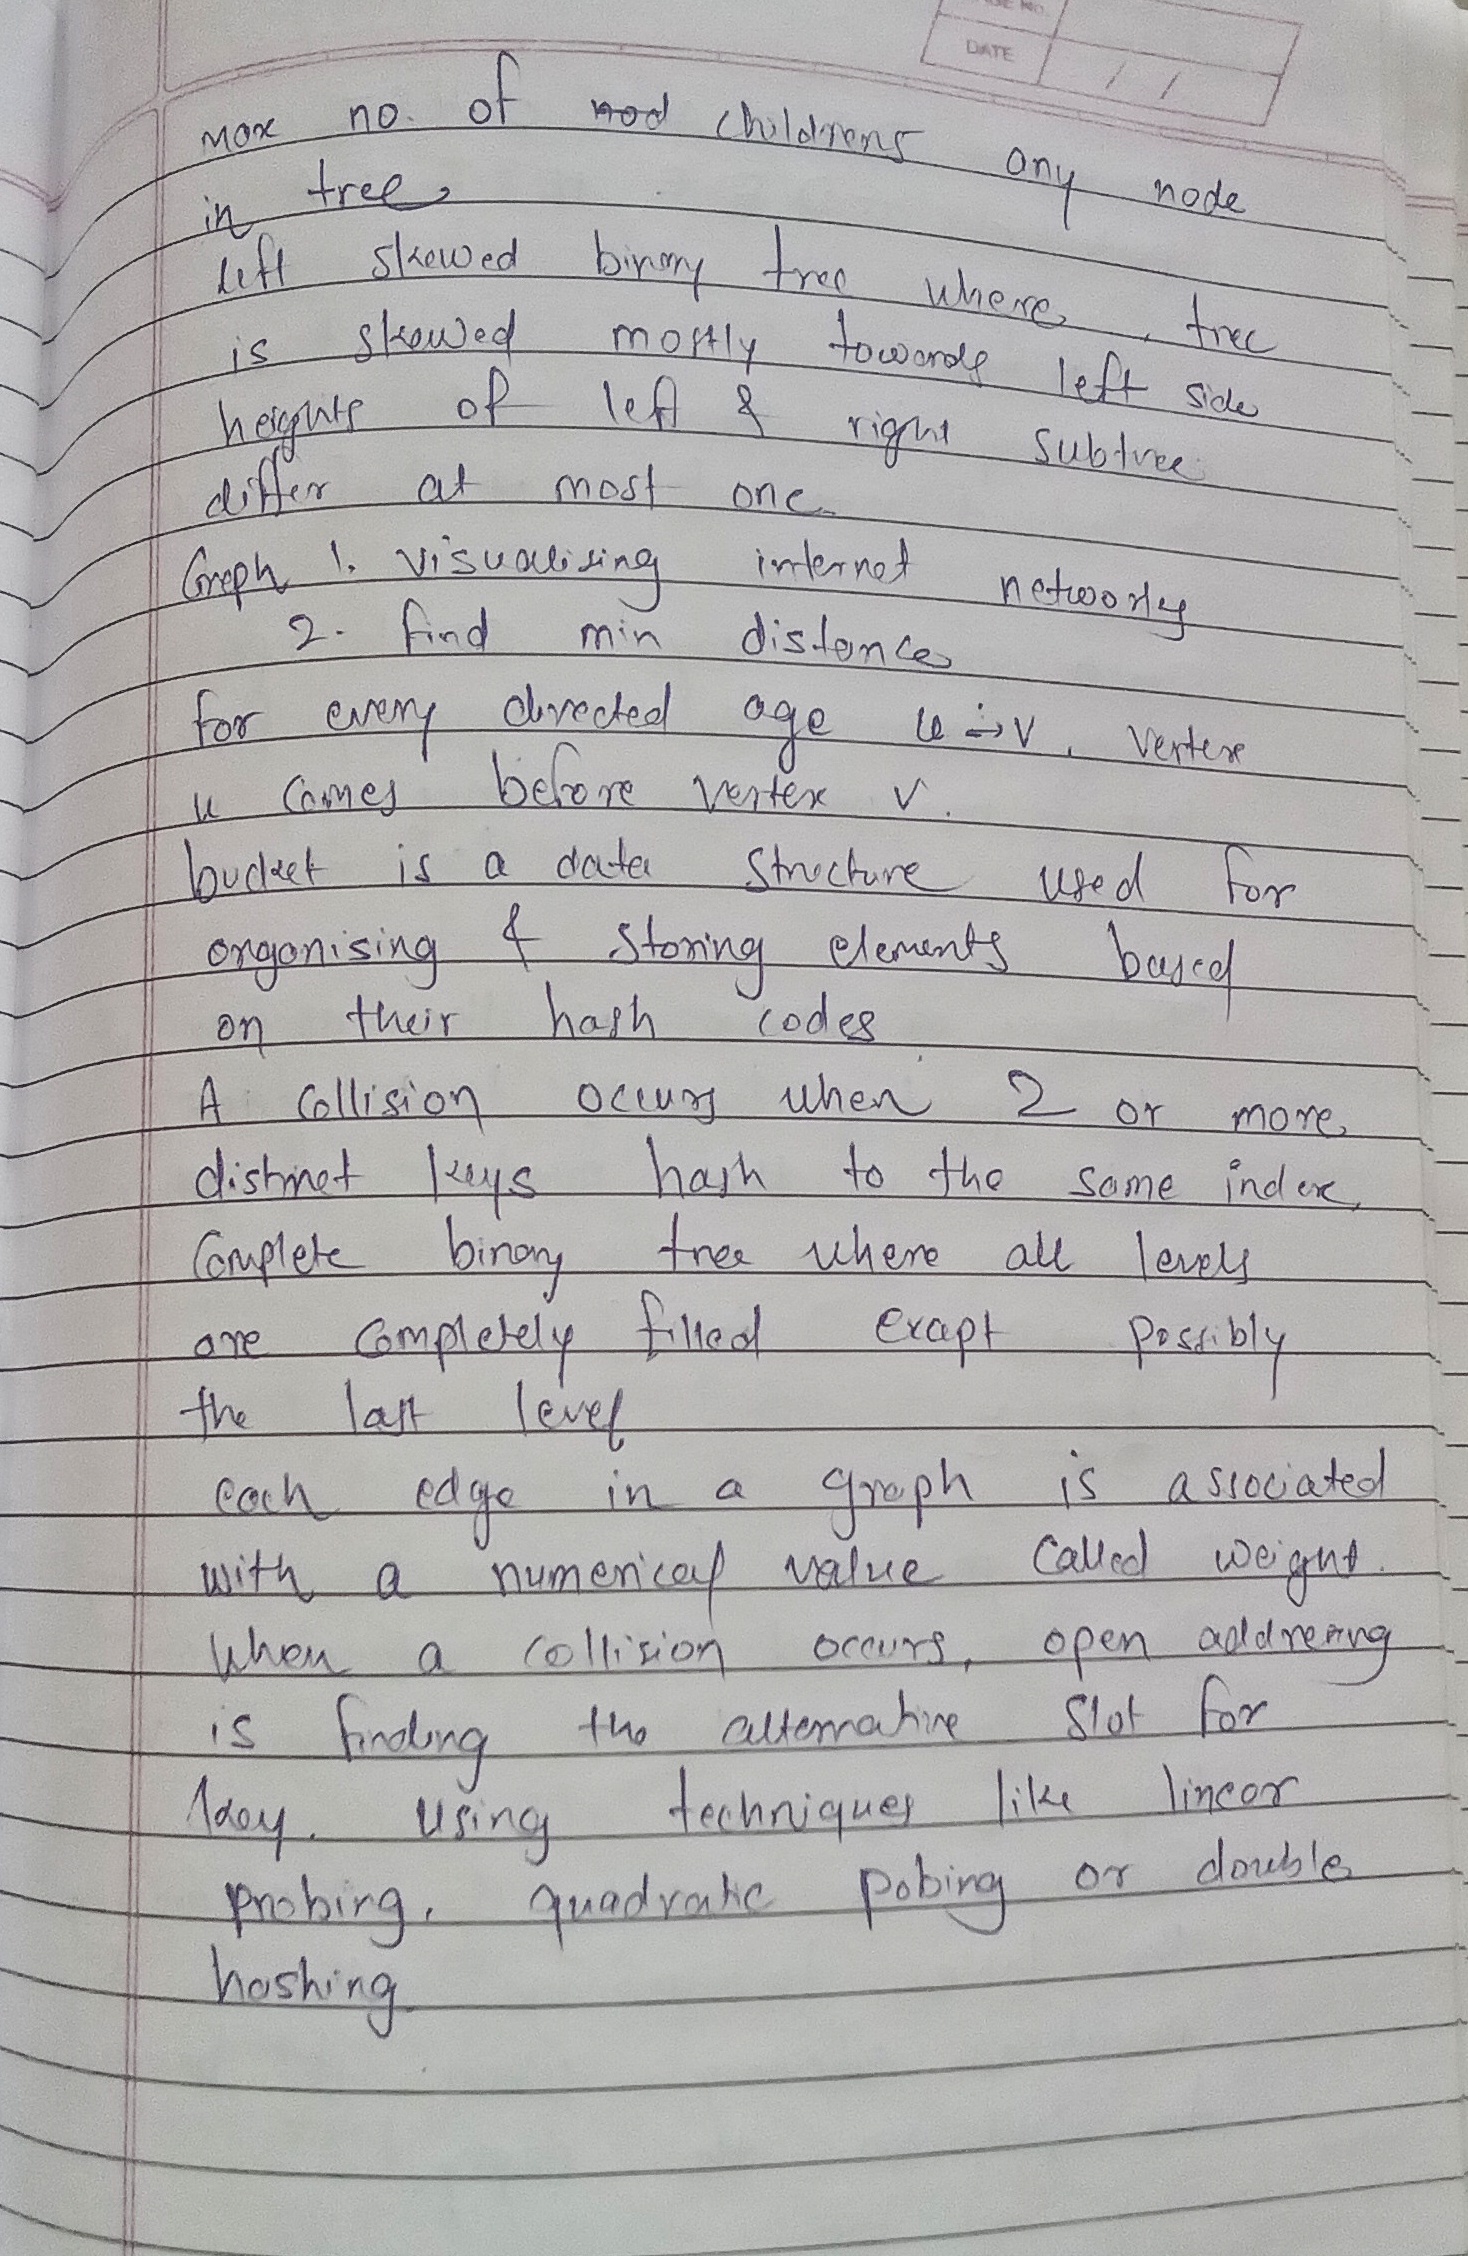 DATE / /
max no. of nod childrens any node
in tree
left skewed binary tree where, tree
is skewed mostly towards left side
heights of left & right subtree
differ at most one.
Graph 1. visualising internet networks
2. find min distance
for every directed age u → v, vertex
u comes before vertex v.
bucket is a data structure used for
organising & storing elements based
on their hash codes
A collision occurs when 2 or more
distinct keys hash to the same index.
Complete binary tree where all levels
are completely filled except possibly
the last level
each edge in a graph is associated
with a numerical value called weight.
when a collision occurs, open addressing
is finding the alternative slot for
key. using techniques like linear
probing, quadratic pobing or double
hashing.